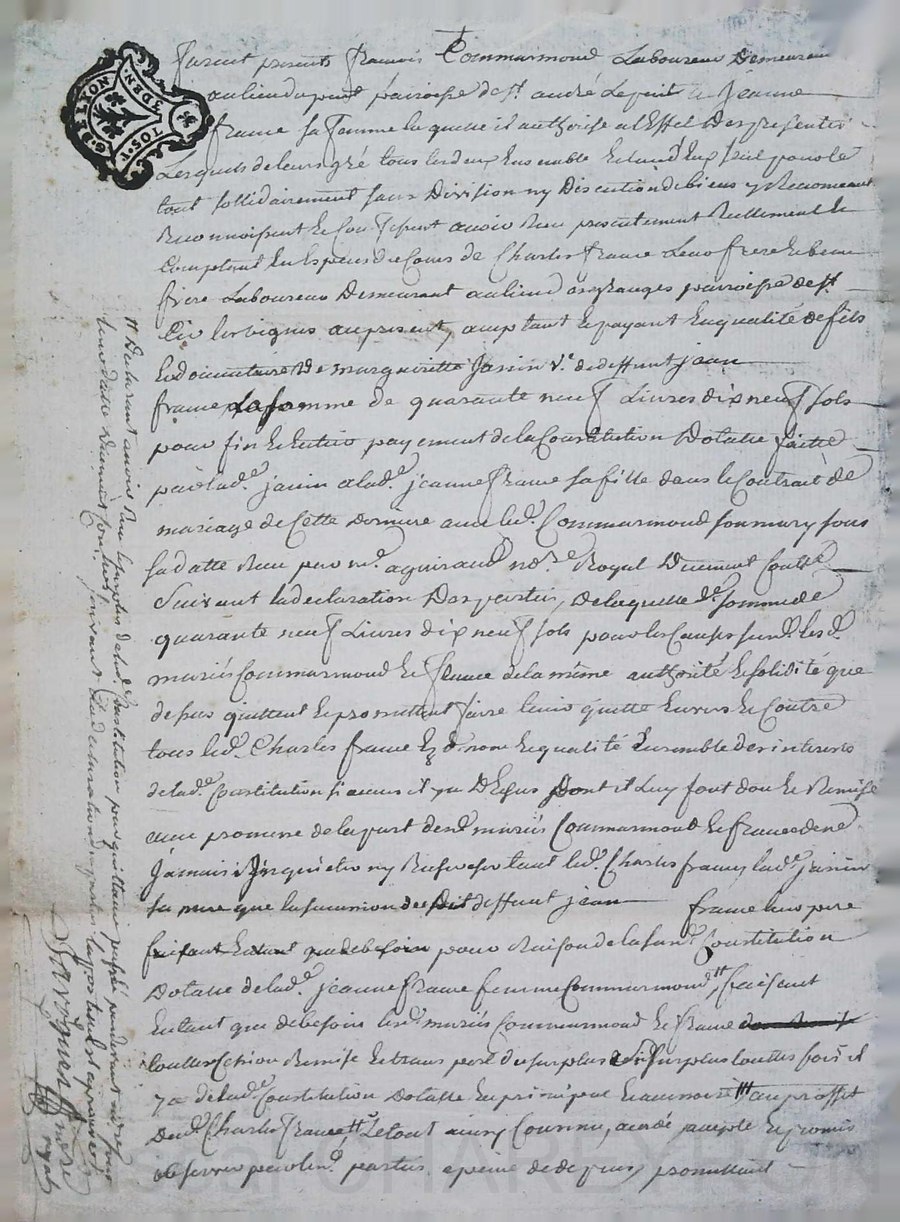 Furent presents francois Commarmond Laboureur Demeurant
au lieu du pont parroisse de st. andré Le puit & Jeanne
france sa femme laquelle il authorise a l'Effet Des presentes
Lesquels de leurs gré tous les deux Ensemble Et lund'Eux seul pour le
tout sollidairement sans Division ny Discution de biens y Renonceant
Reconnoissent Et Confessent avoir Reçu presentement Reellement &
Comptant En Especes de Cours de Charles france Leur frere Et beau
frere Laboureur Demeurant au lieu des granges parroisse de st.
les vignes au present, acceptant Et payant En qualité de fils
Et donnataire De margueritte Janin ve. de deffunt jean
france La somme de quarante neuf Livres dix neuf sols
pour fin Et Entier payement de la Constitution Dotalle faitte
par lade. janin a lade. jeanne france sa fille dans le Contrait de
mariage de Cette derniere avec led. Commarmond son mary sous
sa datte Reçu par me. no.re Royal Duement Contlé
Suivant la declaration Des parties, de laquelle de. somme de
quarante neuf Livres dix neuf sols pour les Causes susd. lesd.
mariés Commarmond Et france de la même authorité Et solidité que
dessus quittent Et promettent faire tenir quitte Envers Et Contre
tous led. Charles france Esd. nom Et qualité Ensemble des interets
de lad. Constitution si aucuns il y a Dessus Dont il Luy font don Et Remise
avec promesse de la part desd. mariés Commarmond Et france de ne
Jamais Inquieter ny Rechercher tant led. Charles france, lade. janin
sa mere que la succession dudit deffunt jean france leur pere
faisant Entant que de besoin pour Raison de la susd. Constitution
Dotalle de lade. jeanne france femme Commarmond, # faisant
Entant que de besoin lesd. mariés Commarmond Et france
touttes Cession Remise Et transport du surplus si surplus touttes fois il
y a de lade. Constitution Dotalle En principal Et accessoire ## au proffit
dud. Charles france, ## Le tout ainsy Convenu, accordé accepté Et promis
observer par les d. parties, a peine de depens, promettant
# Declarant avoir Reçu le surplus de lad. Constitution par quittance
sous datte Duement Contlée, suivant la declaration
notre royal